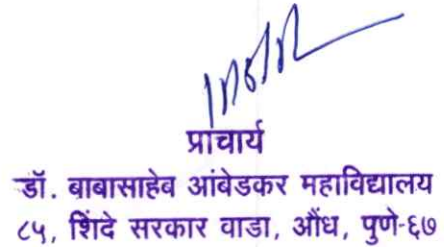 प्राचार्य
डॉ. बाबासाहेव आंबेडकर महाविद्यालय
८५, शिंदे सरकार वाडा, औंध, पुणे-६७